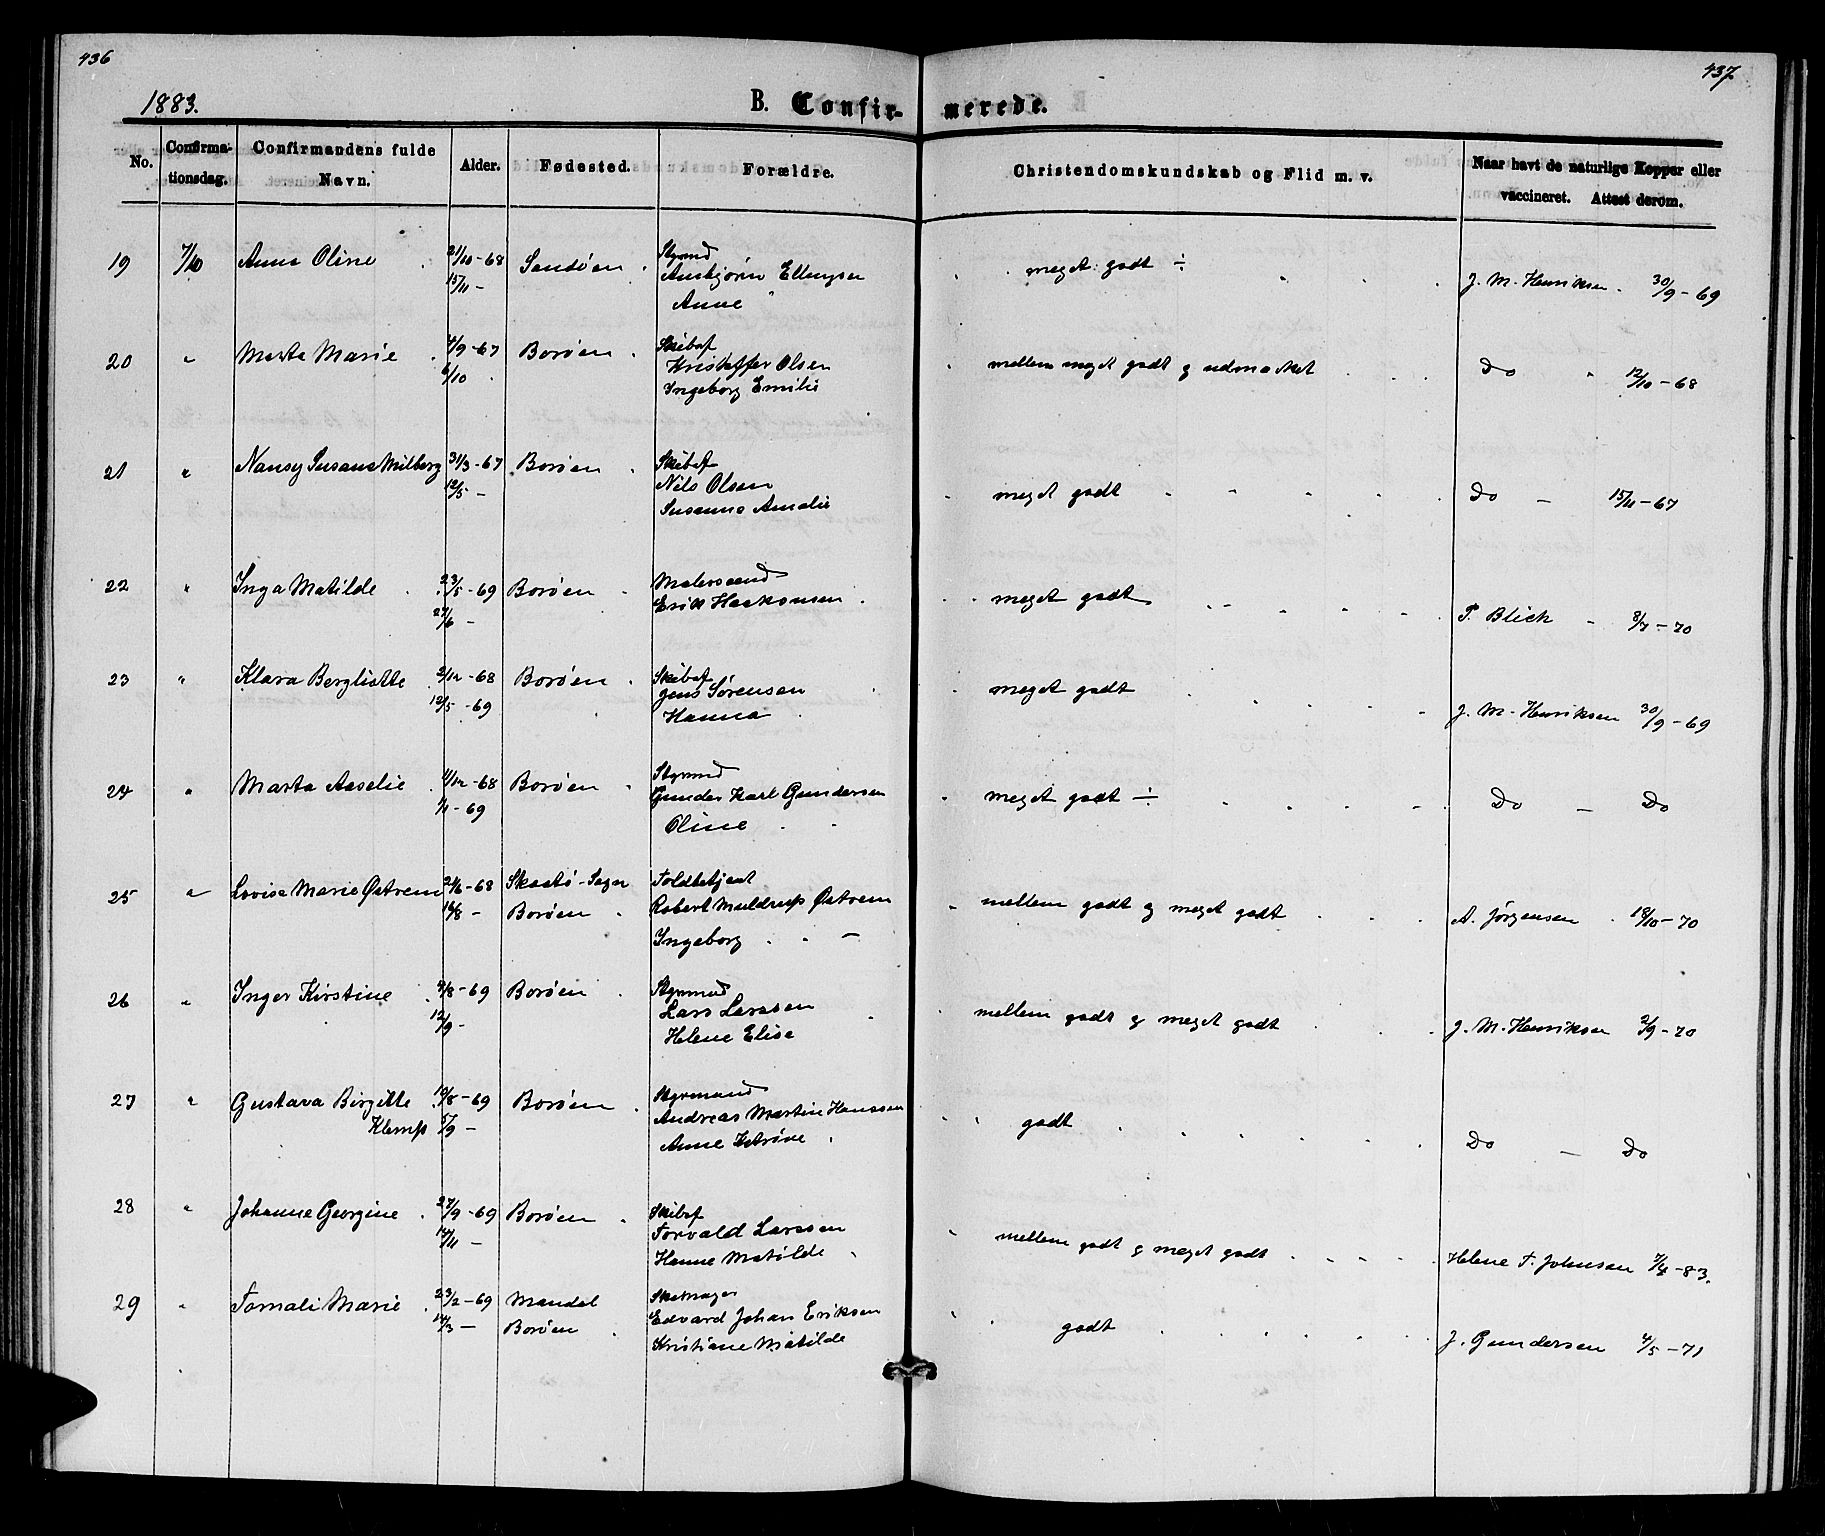 436
437
1883.
B. Confir- merede.
No. Confirma-tionsdag. Confirmandens fulde Navn. Alder. Fødested. Forældre. Christendomskundskab og Flid m. v. Naar havt de naturlige Kopper eller vaccineret. Attest derom.
19 7/10 Anna Oline 21/10-68 Sandøen Styrmd meget godt ÷ J. M. Henriksen 30/9-69
15/11 - Ellingsen
Anne "
20 " Marta Marie 4/9-67 Borøen Skibsf mellem meget godt og udmærket Do " 12/10-68
6/10 Kristoffer Olsen
Ingeborg Emilie
21 " Nansy Susana Milberg 31/3-67 Borøen Skibsf meget godt Do - 15/11-67
12/5 - Nils Olsen
Susanne Amalie
22 " Inga Matilde 23/5-69 Borøen Matersaend meget godt P. Blich - 8/7-70
27/6 - Erik Haakonsen
23 " Klara Bergliotte 2/12-68 Borøen Skibsf meget godt J. M. Henriksen 30/9-69
12/5-69 Jens Sørensen
Hanna
24 " Marta Aaselie 11/12-68 Borøen Styrmd meget godt ÷ Do - Do
1/1-69 Gunder Karl Gundersen
Oline
25 " Lovise Marie Østrem 24/6-68 Skaatø-Sogn Toldbetjent mellem godt og meget godt A. Jørgensen 18/10-70
16/8 - Borøen Robert Muldrup Østrem
Ingeborg -
26 " Inger Kirstine 4/8-69 Borøen Styrmnd mellem godt og meget godt J. M. Henriksen 2/9-70
12/9- Lars Larssen
Helene Elise
27 " Gustava Birgitte 10/8-69 Borøen Styrmand godt Do - Do
Klemp 5/9 - Andreas Martin Hanssen
Anne
28 " Johanne Georgine 27/9-69 Borøen Skibsf mellem godt og meget godt Helene T. Johnsen 7/4-83.
14/11 - Torvald Larssen
Hanne Matilde
29 " Tomali Marie 23/2-69 Mandal godt J. Gundersen 4/5-71
14/3 - Borøen Edvard Johan Eriksen
Kristiane Matilde